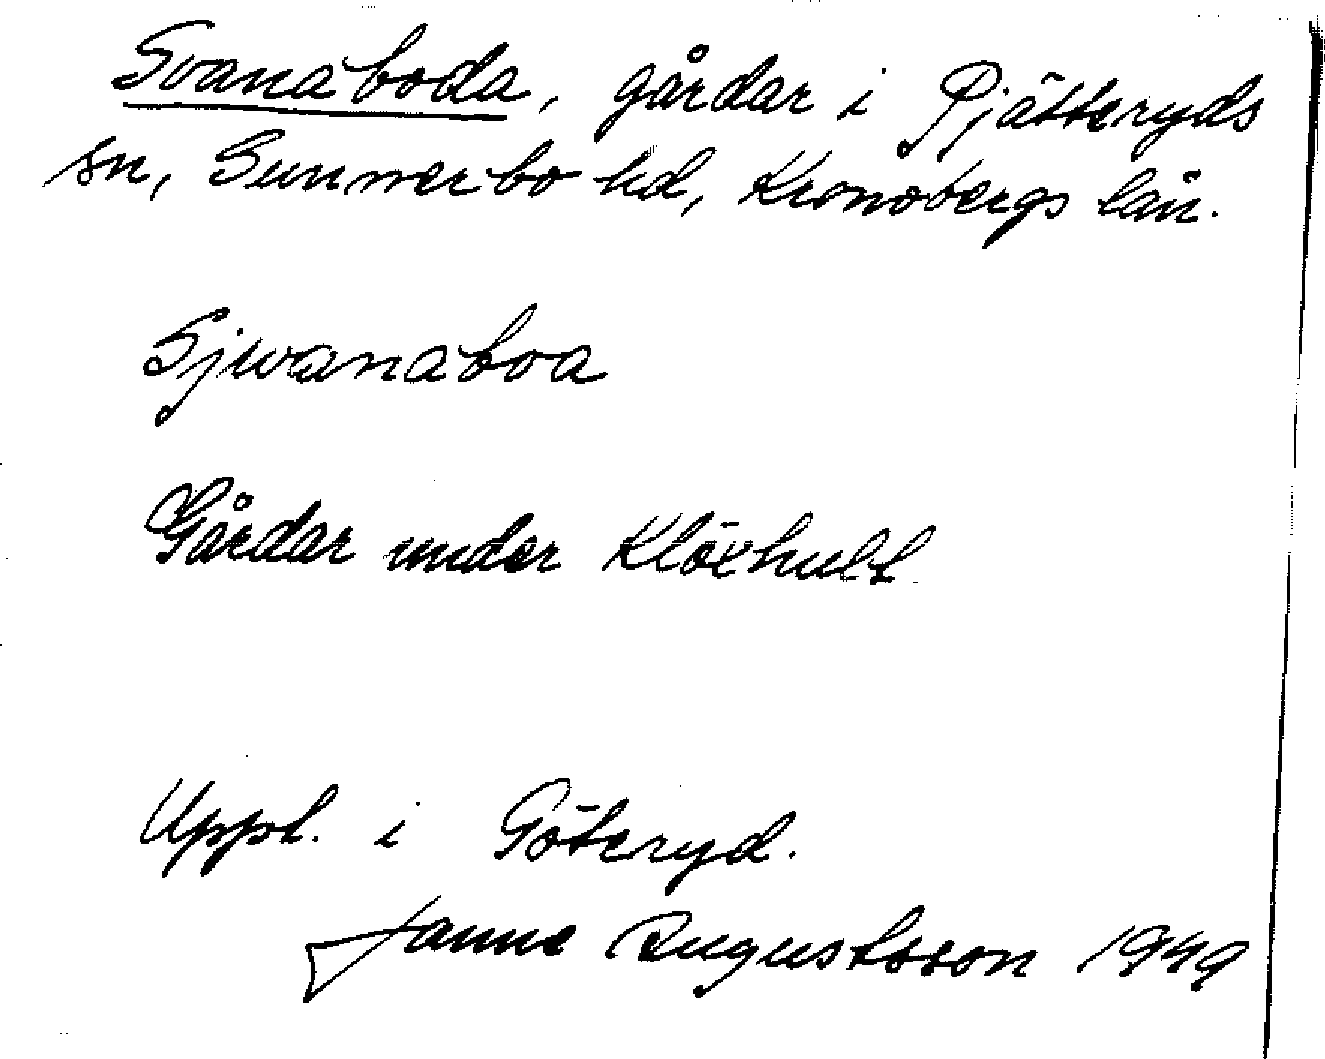 Svanaboda, gårdar i Pjätteryds
sn, Sunnerbo hd, Kronobergs län.
Sjwanaboa
Gårdar under Klöxhult
Uppt. i Göteryd.
Janne Augustsson 1949